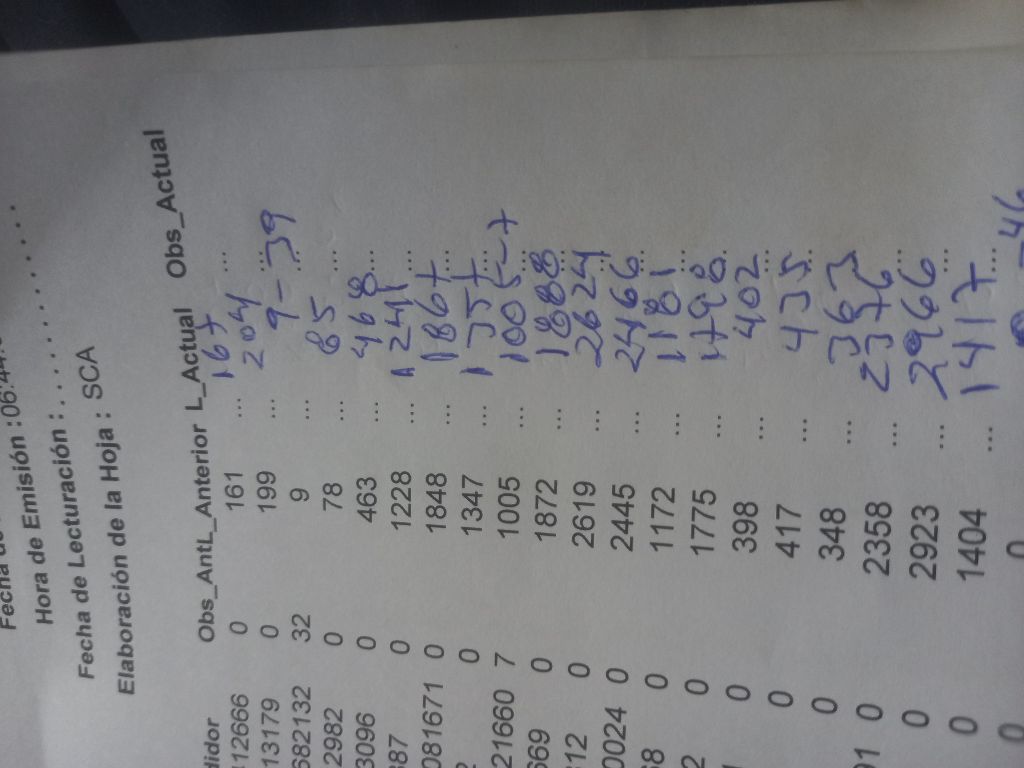 Hora de Emisión :06:44:
Fecha de Lecturación : . . . . . . . . . . . . . . .
Elaboración de la Hoja : SCA
didor Obs_Ant L_Anterior L_Actual Obs_Actual
112666 0 161 ... 167 ...
13179 0 199 ... 204 ...
682132 32 9 ... 9 - 39 ...
2982 0 78 ... 85 ...
3096 0 463 ... 468 ...
387 0 1228 ... 1241 ...
081671 0 1848 ... 1867 ...
2 0 1347 ... 1357 ...
21660 7 1005 ... 1005 - 7 ...
669 0 1872 ... 1888 ...
312 0 2619 ... 2624 ...
0024 0 2445 ... 2466 ...
38 0 1172 ... 1181 ...
2 0 1775 ... 1798 ...
0 398 ... 402 ...
0 417 ... 435 ...
0 348 ... 363 ...
91 0 2358 ... 2376 ...
0 2923 ... 2966 ...
0 1404 ... 1417 ...
0 0 - 46